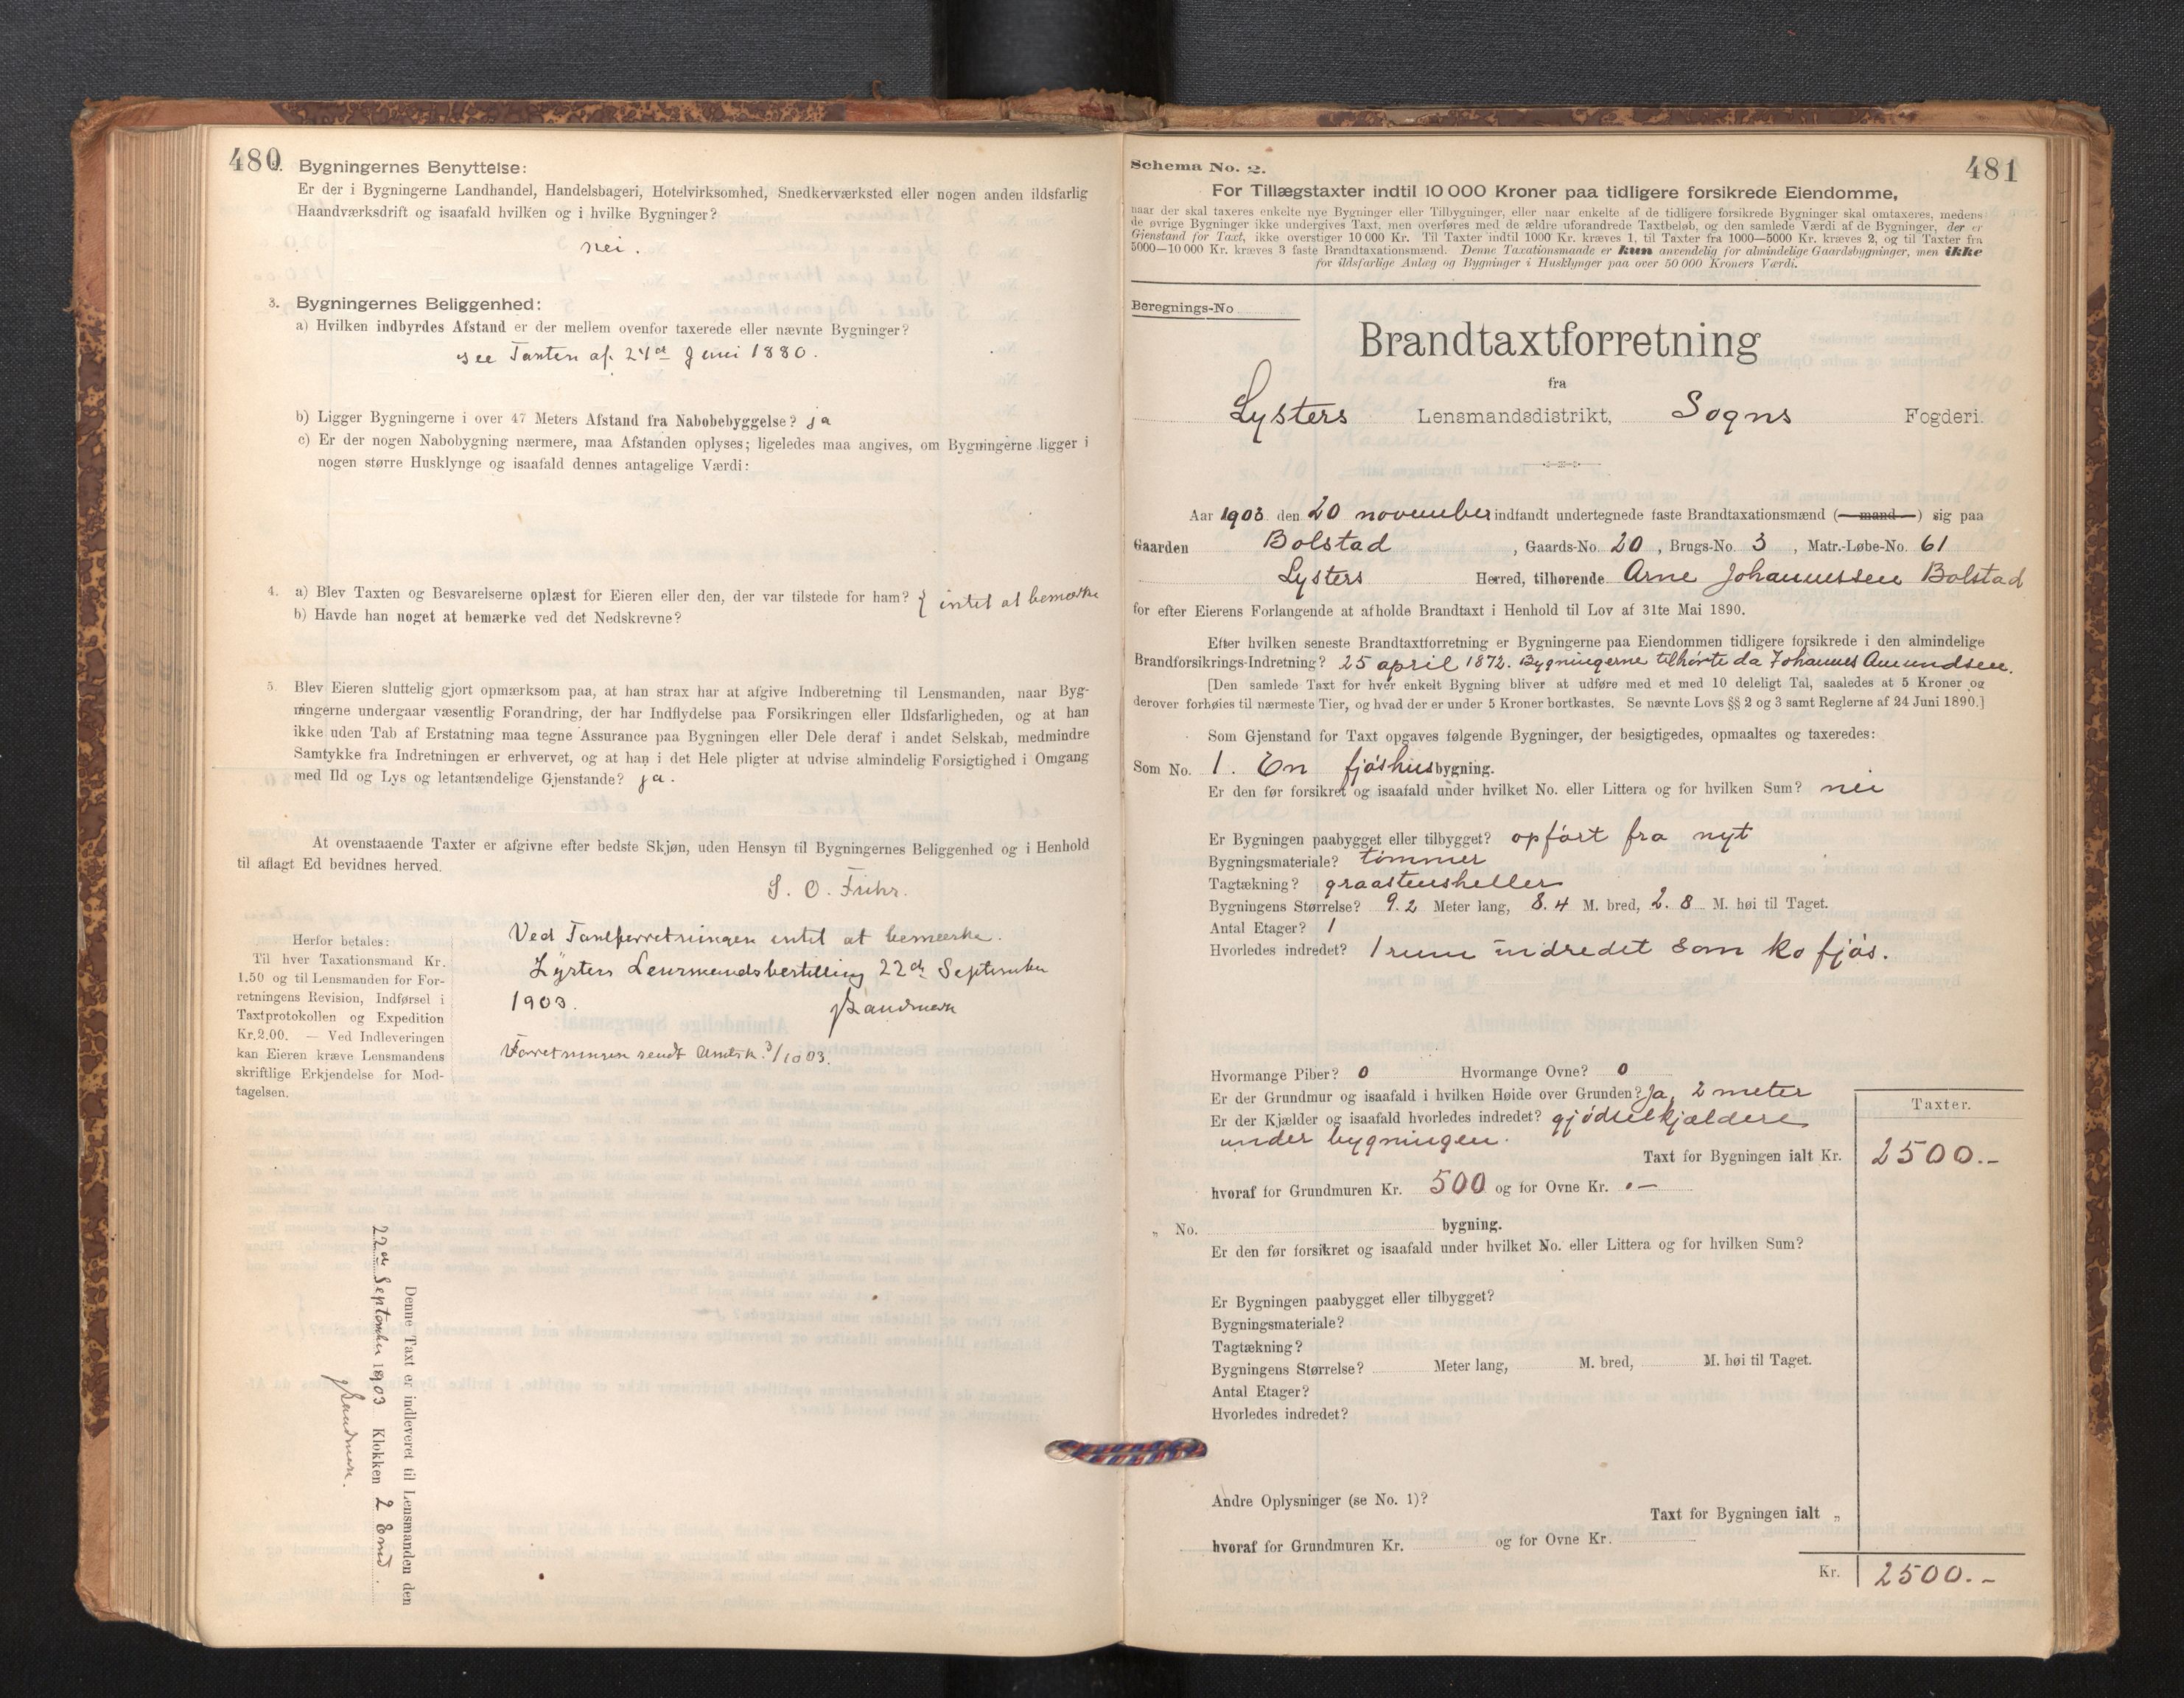 480
2. Bygningernes Benyttelse:
Er der i Bygningerne Landhandel, Handelsbageri, Hotelvirksomhed, Snedkerværksted eller nogen anden ildsfarlig
Haandværksdrift og isaafald hvilken og i hvilke Bygninger?
nei.
3. Bygningernes Beliggenhed:
a) Hvilken indbyrdes Afstand er der mellem ovenfor taxerede eller nævnte Bygninger?
see Taxten af 24de Juni 1880.
b) Ligger Bygningerne i over 47 Meters Afstand fra Nabobebyggelse? ja
c) Er der nogen Nabobygning nærmere, maa Afstanden oplyses; ligeledes maa angives, om Bygningerne ligger i
nogen større Husklynge og isaafald dennes antagelige Værdi:
4. a) Blev Taxten og Besvarelserne oplæst for Eieren eller den, der var tilstede for ham? { intet at bemærke
b) Havde han noget at bemærke ved det Nedskrevne?
5. Blev Eieren sluttelig gjort opmærksom paa, at han strax har at afgive Indberetning til Lensmanden, naar Byg-
ningerne undergaar væsentlig Forandring, der har Indflydelse paa Forsikringen eller Ildsfarligheden, og at han
ikke uden Tab af Erstatning maa tegne Assurance paa Bygningen eller Dele deraf i andet Selskab, medmindre
Samtykke fra Indretningen er erhvervet, og at han i det Hele pligter at udvise almindelig Forsigtighed i Omgang
med Ild og Lys og letantændelige Gjenstande? ja.
At ovenstaaende Taxter er afgivne efter bedste Skjøn, uden Hensyn til Bygningernes Beliggenhed og i Henhold
til aflagt Ed bevidnes herved.
S. O. Fuhr.
Ved Taxtforretningen intet at bemærke.
Lysters Lensmandsbestilling 22de September
1903. Sandmark
Forretningen sendt Amtsk. 3/10 03.
Herfor betales:
Til hver Taxationsmand Kr.
1.50 og til Lensmanden for For-
retningens Revision, Indførsel i
Taxtprotokollen og Expedition
Kr. 2.00. — Ved Indleveringen
kan Eieren kræve Lensmandens
skriftlige Erkjendelse for Mod-
tagelsen.
Denne Taxt er indleveret til Lensmanden den
22de September 1903 Klokken 2 Emd.
Sandmark.
481
Schema No. 2.
For Tillægstaxter indtil 10 000 Kroner paa tidligere forsikrede Eiendomme,
naar der skal taxeres enkelte nye Bygninger eller Tilbygninger, eller naar enkelte af de tidligere forsikrede Bygninger skal omtaxeres, medens
de øvrige Bygninger ikke undergives Taxt, men overføres med de ældre uforandrede Taxtbeløb, og den samlede Værdi af de Bygninger, der er
Gjenstand for Taxt, ikke overstiger 10 000 Kr. Til Taxter indtil 1000 Kr. kræves 1, til Taxter fra 1000—5000 Kr. kræves 2, og til Taxter fra
5000—10 000 Kr. kræves 3 faste Brandtaxationsmænd. Denne Taxationsmaade er kun anvendelig for almindelige Gaardsbygninger, men ikke
for ildsfarlige Anlæg og Bygninger i Husklynger paa over 50 000 Kroners Værdi.
Beregnings-No
Brandtaxtforretning
fra
Lysters Lensmandsdistrikt, Sogns Fogderi.
Aar 1903 den 20 november indfandt undertegnede faste Brandtaxationsmænd (mand) sig paa
Gaarden Bolstad, Gaards-No. 20, Brugs-No. 3, Matr.-Løbe-No. 61
Lysters Herred, tilhørende Arne Johannessen Bolstad
for efter Eierens Forlangende at afholde Brandtaxt i Henhold til Lov af 31te Mai 1890.
Efter hvilken seneste Brandtaxtforretning er Bygningerne paa Eiendommen tidligere forsikrede i den almindelige
Brandforsikrings-Indretning? 25 april 1872. Bygningerne tilhørte da Johannes Amundsen.
[Den samlede Taxt for hver enkelt Bygning bliver at udføre med et med 10 deleligt Tal, saaledes at 5 Kroner og
derover forhøies til nærmeste Tier, og hvad der er under 5 Kroner bortkastes. Se nævnte Lovs §§ 2 og 3 samt Reglerne af 24 Juni 1890.]
Som Gjenstand for Taxt opgaves følgende Bygninger, der besigtigedes, opmaaltes og taxeredes:
Som No. 1. En fjøshus bygning.
Er den før forsikret og isaafald under hvilket No. eller Littera og for hvilken Sum? nei
Er Bygningen paabygget eller tilbygget? opført fra nyt
Bygningsmateriale? tømmer
Tagtækning? graastensheller
Bygningens Størrelse? 9.2 Meter lang, 8.4 M. bred, 2.8 M. høi til Taget.
Antal Etager? 1
Hvorledes indredet? 1 rum indredet som ko fjøs.
Hvormange Piber? 0 Hvormange Ovne? 0
Er der Grundmur og isaafald i hvilken Høide over Grunden? Ja, 2 meter
Er der Kjælder og isaafald hvorledes indredet? gjødselkjældere
under bygningen.
Taxter.
Taxt for Bygningen ialt Kr. 2500.-
hvoraf for Grundmuren Kr. 500 og for Ovne Kr. •—
„ No. bygning.
Er den før forsikret og isaafald under hvilket No. eller Littera og for hvilken Sum?
Er Bygningen paabygget eller tilbygget?
Bygningsmateriale?
Tagtækning?
Bygningens Størrelse? Meter lang, M. bred, M. høi til Taget.
Antal Etager?
Hvorledes indredet?
Andre Oplysninger (se No. 1)?
Taxt for Bygningen ialt „
hvoraf for Grundmuren Kr. og for Ovne Kr.
Kr. 2500.-